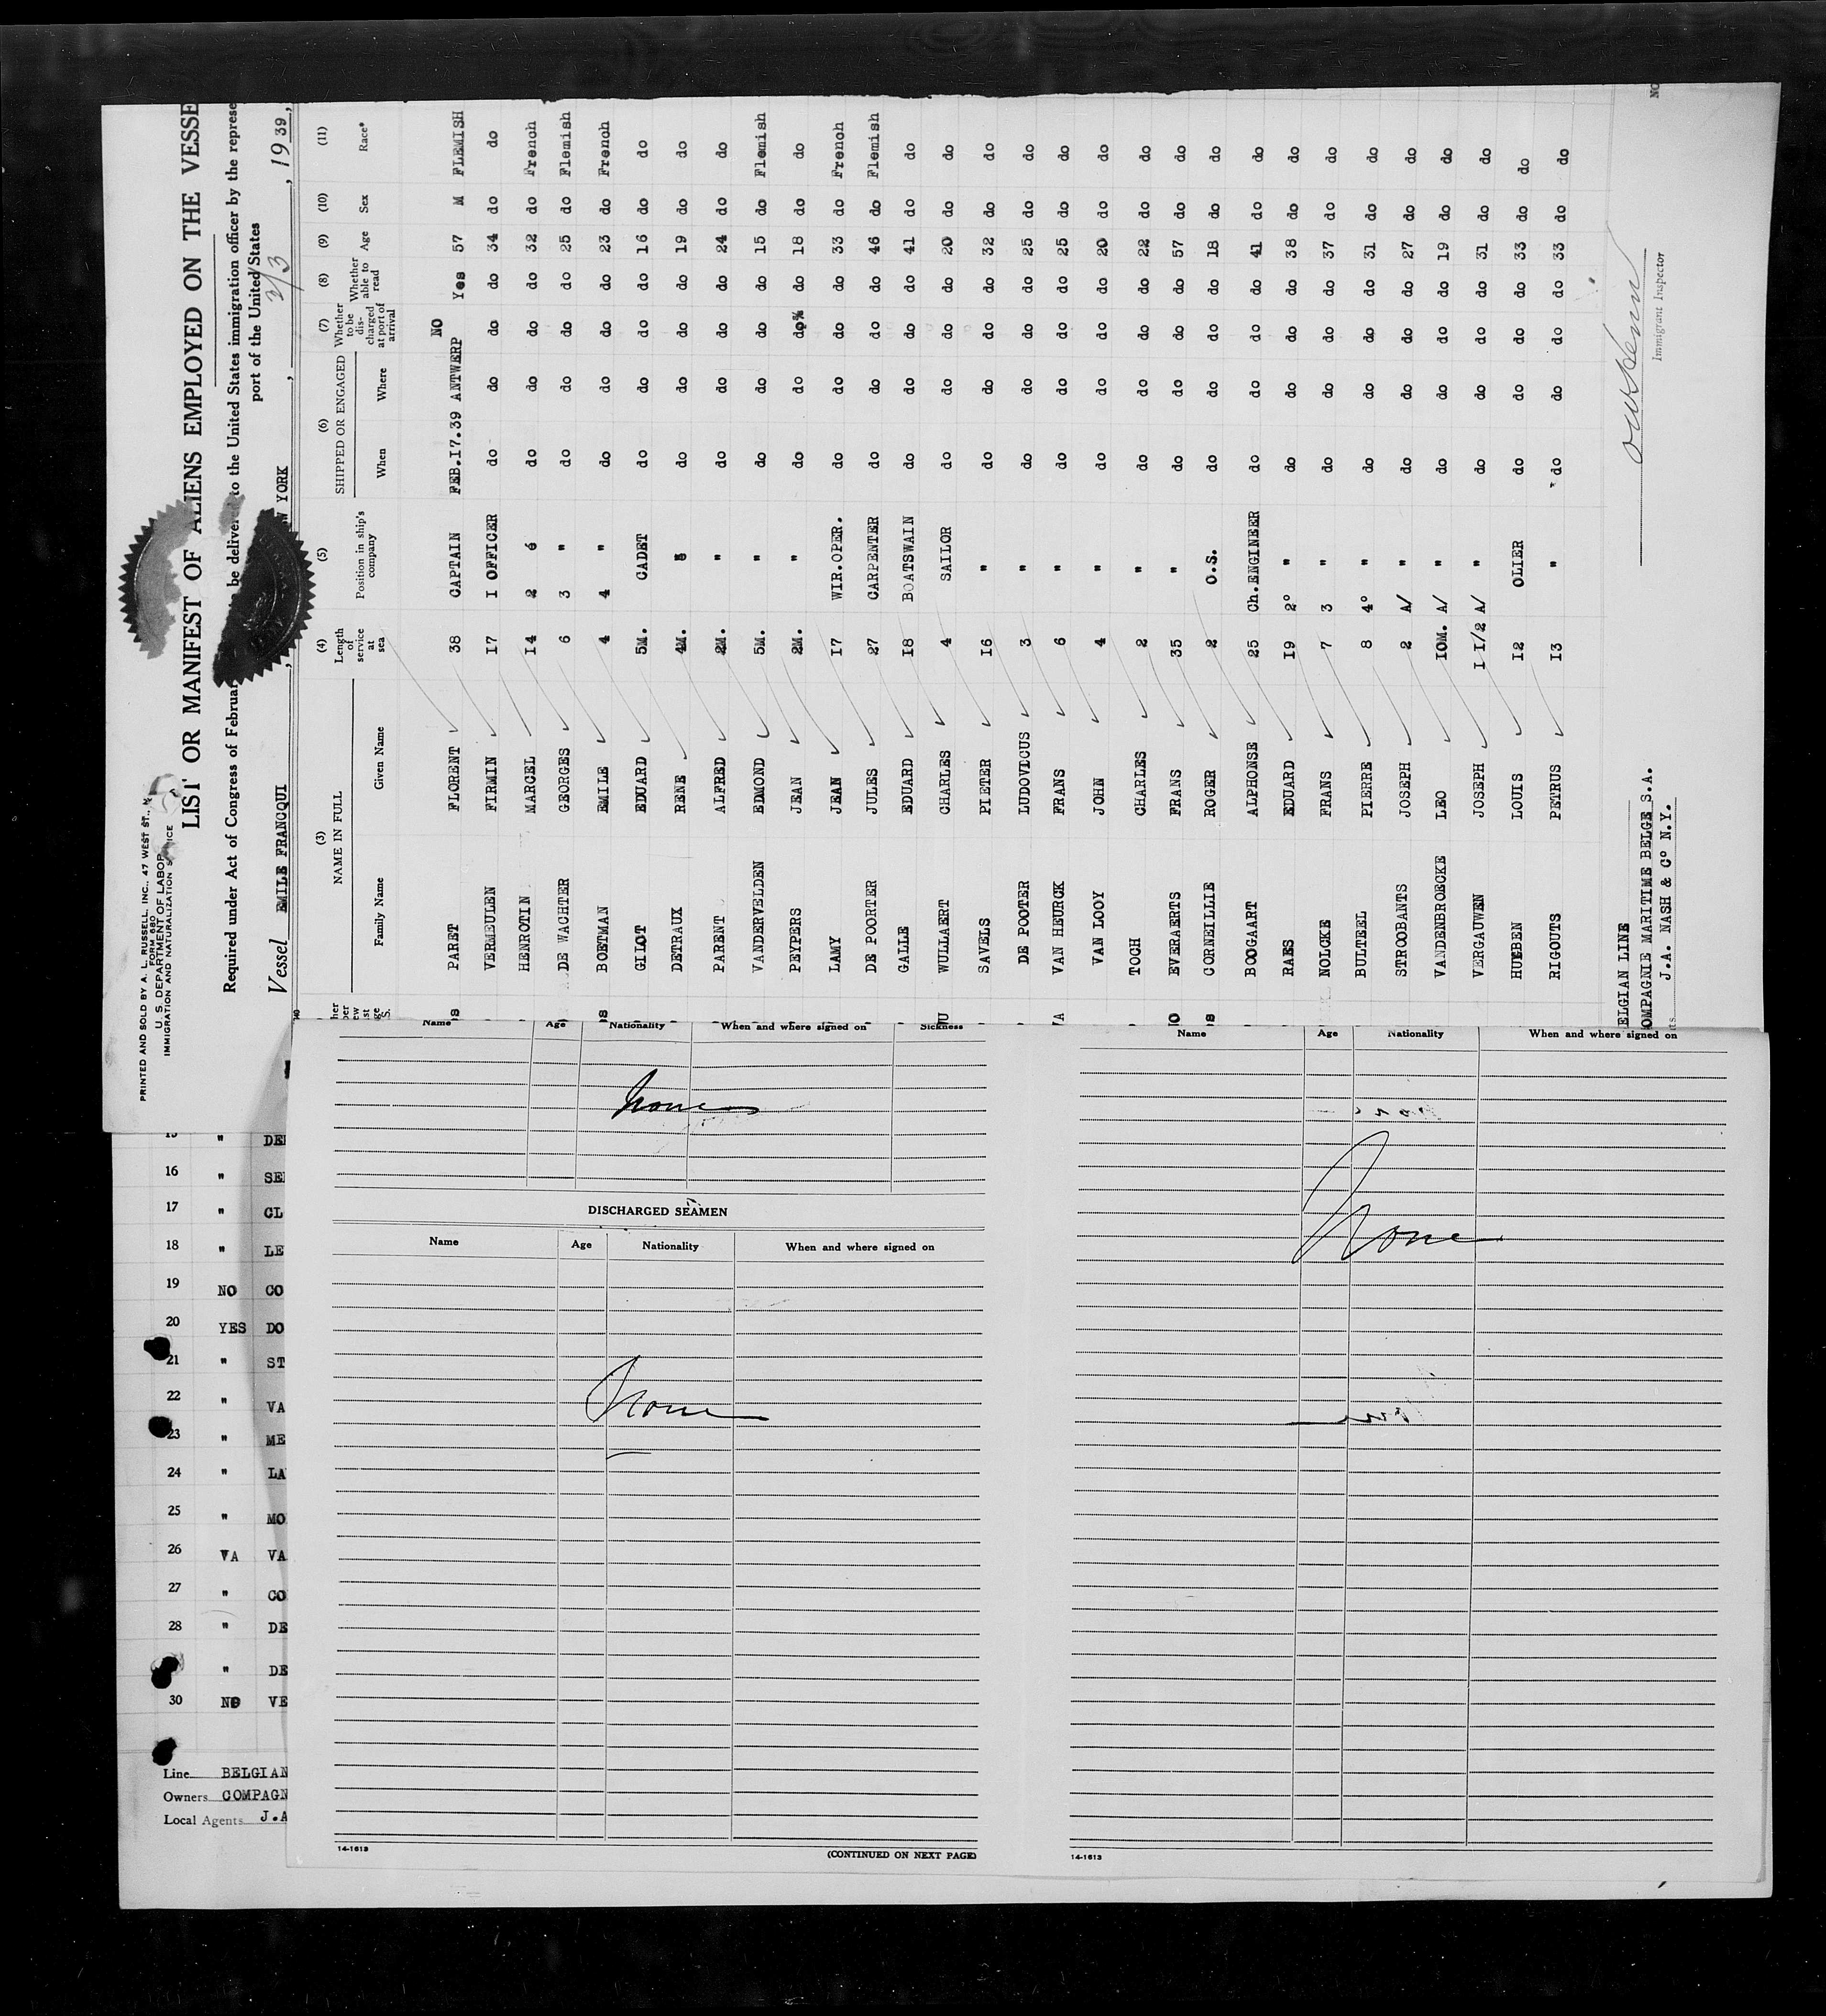 PRINTED AND SOLD BY A. L. RUSSELL, INC., 47 WEST ST.,
FORM 680
U. S. DEPARTMENT OF LABOR
IMMIGRATION AND NATURALIZATION
LIST OR MANIFEST OF ALIENS EMPLOYED ON THE VESSE
Required under Act of Congress of Februar be delivered to the United States immigration officer by the represe
port of the United States
Vessel EMILE FRANQUI , W YORK , 3/3 , 1939,
(3) (4) (5) (6) (7) (8) (9) (10) (11)
NAME IN FULL Length of service at sea Position in ship's company SHIPPED OR ENGAGED Whether to be discharged at port of arrival Whether able to read Age Sex Race*
Family Name Given Name When Where
NO
PARET FLORENT 38 CAPTAIN FEB.17.39 ANTWERP Yes 57 M FLEMISH
VERMEULEN FIRMIN 17 I OFFICER do do do do 34 do do
HENROTIN MARCEL 14 2 do do do do 32 do French
DE WACHTER GEORGES 6 3 " do do do do 25 do Flemish
BOETMAN EMILE 4 4 " do do do do 23 do French
GILOT EDUARD 5M. CADET do do do do 16 do do
DETRAUX RENE 4M. " do do do do 19 do do
PARENT ALFRED 2M. " do do do do 24 do do
VANDERVELDEN EDMOND 5M. " do do do do 15 do Flemish
PEYPERS JEAN 2M. " do do do do 18 do do
LAMY JEAN 17 WIR.OPER. do do do do 33 do French
DE POORTER JULES 27 CARPENTER do do do do 46 do Flemish
GALLE EDUARD 18 BOATSWAIN do do do do 41 do do
WULLAERT CHARLES 4 SAILOR do do do do 20 do do
SAVELS PIETER 16 " do do do do 32 do do
DE POOTER LUDOVICUS 3 " do do do do 25 do do
VAN HEURCK FRANS 6 " do do do do 25 do do
VAN LOOY JOHN 4 " do do do do 20 do do
TOGH CHARLES 2 " do do do do 22 do do
EVERAERTS FRANS 35 " do do do do 57 do do
CORNEILLIE ROGER 2 O.S. do do do do 18 do do
BOOGAART ALPHONSE 25 Ch.ENGINEER do do do do 41 do do
RAES EDUARD 19 2° " do do do do 38 do do
NOLCKE FRANS 7 3 " do do do do 37 do do
BULTEEL PIERRE 8 4° " do do do do 31 do do
STROOBANTS JOSEPH 2 A/ " do do do do 27 do do
VANDENBROECKE LEO 10M. A/ " do do do do 19 do do
VERGAUWEN JOSEPH 1 1/2 A/ " do do do do 31 do do
HUEBEN LOUIS 12 OLIER do do do do 33 do do
RIGOUTS PETRUS 13 " do do do do 33 do do
ELGIAN LINE
OMPAGNIE MARITIME BELGE S.A.
J.A. NASH & C° N.Y.
Immigrant Inspector
NO
Name Age Nationality When and where signed on Sickness
None
DISCHARGED SEAMEN
Name Age Nationality When and where signed on
None
14-1613
(CONTINUED ON NEXT PAGE)
Name Age Nationality When and where signed on
None
14-1613
15 " DE
16 " SE
17 " CL
18 " LE
19 NO CO
20 YES DO
21 " ST
22 " VA
23 " ME
24 " LA
25 " MO
26 VA VA
27 " CO
28 " DE
" DE
30 NO VE
Line BELGIAN
Owners COMPAGN
Local Agents J.A